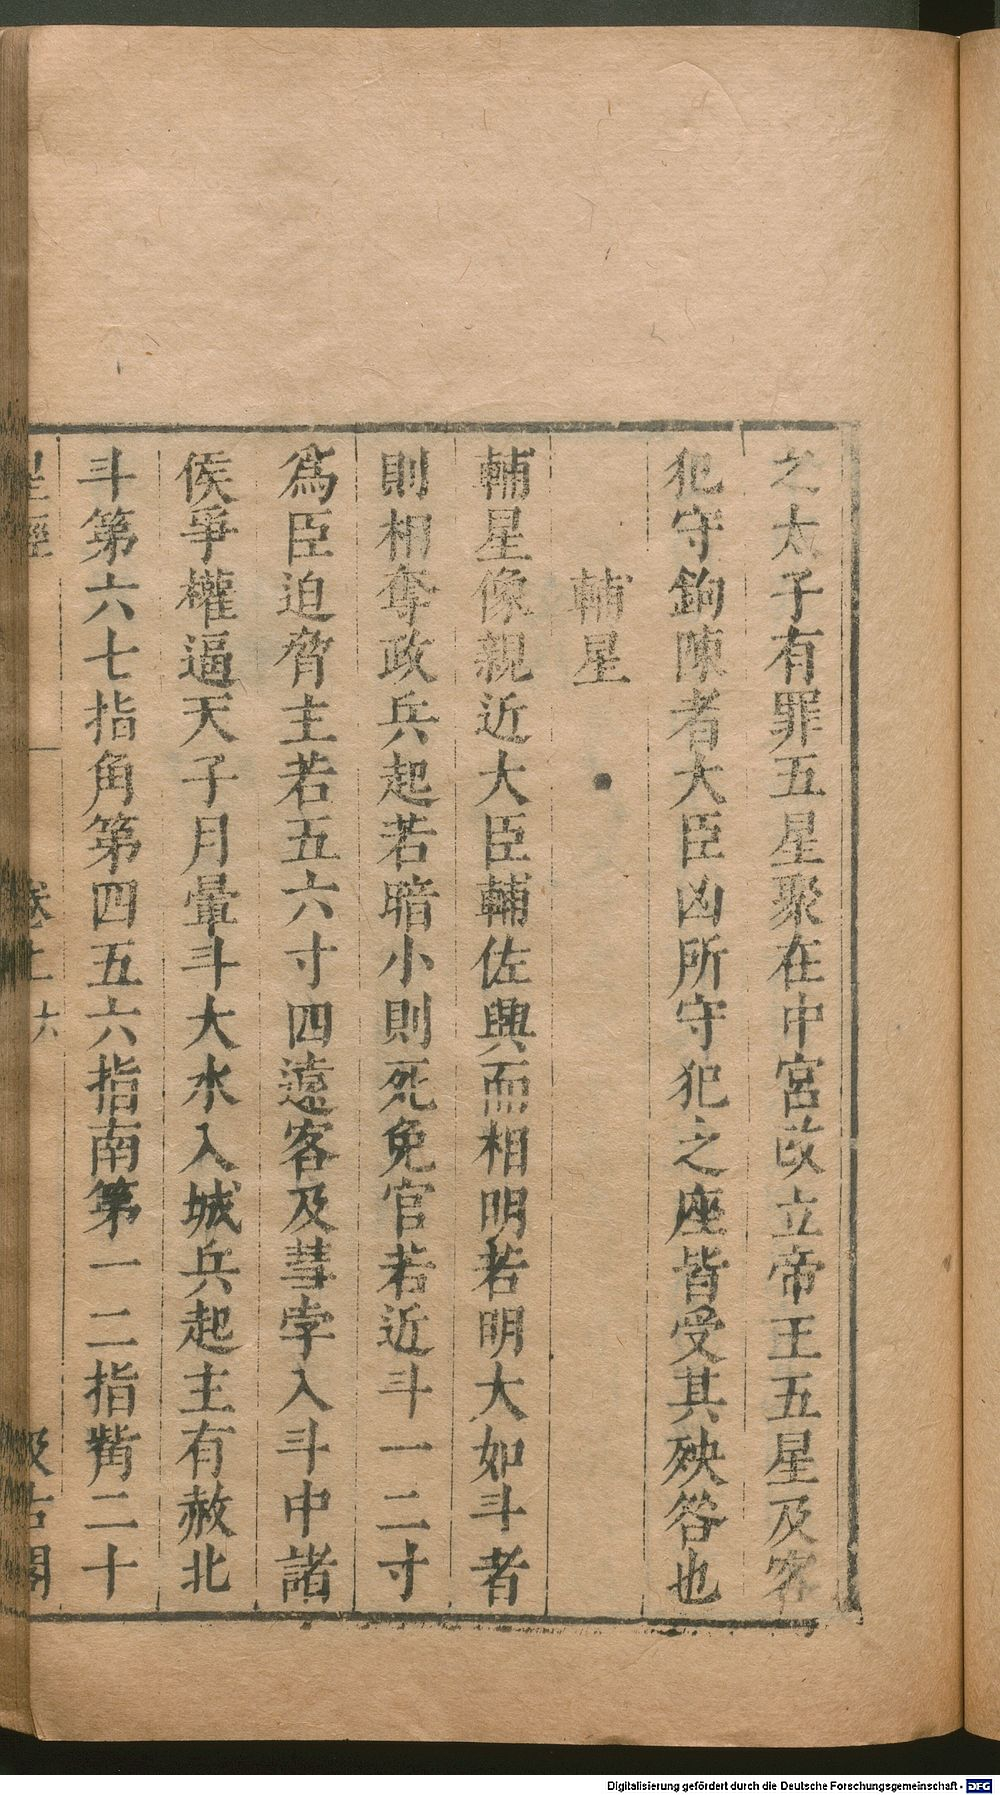 之太子有罪五星聚在中宮改立帝王五星及客
犯守鉤陳者大臣凶所守犯之座皆受其殃咎也
輔星
輔星像親近大臣輔佐興而相明若明大如斗者
則相奪政兵起若暗小則死免官若近斗一二寸
爲臣迫脅主若五六寸四遠客及彗孛入斗中諸
侯爭權逼天子月暈斗大水入城兵起主有赦北
斗第六七指角第四五六指南第一二指觜二十
星經 卷上 六 汲古閣
Digitalisierung gefördert durch die Deutsche Forschungsgemeinschaft - DFG